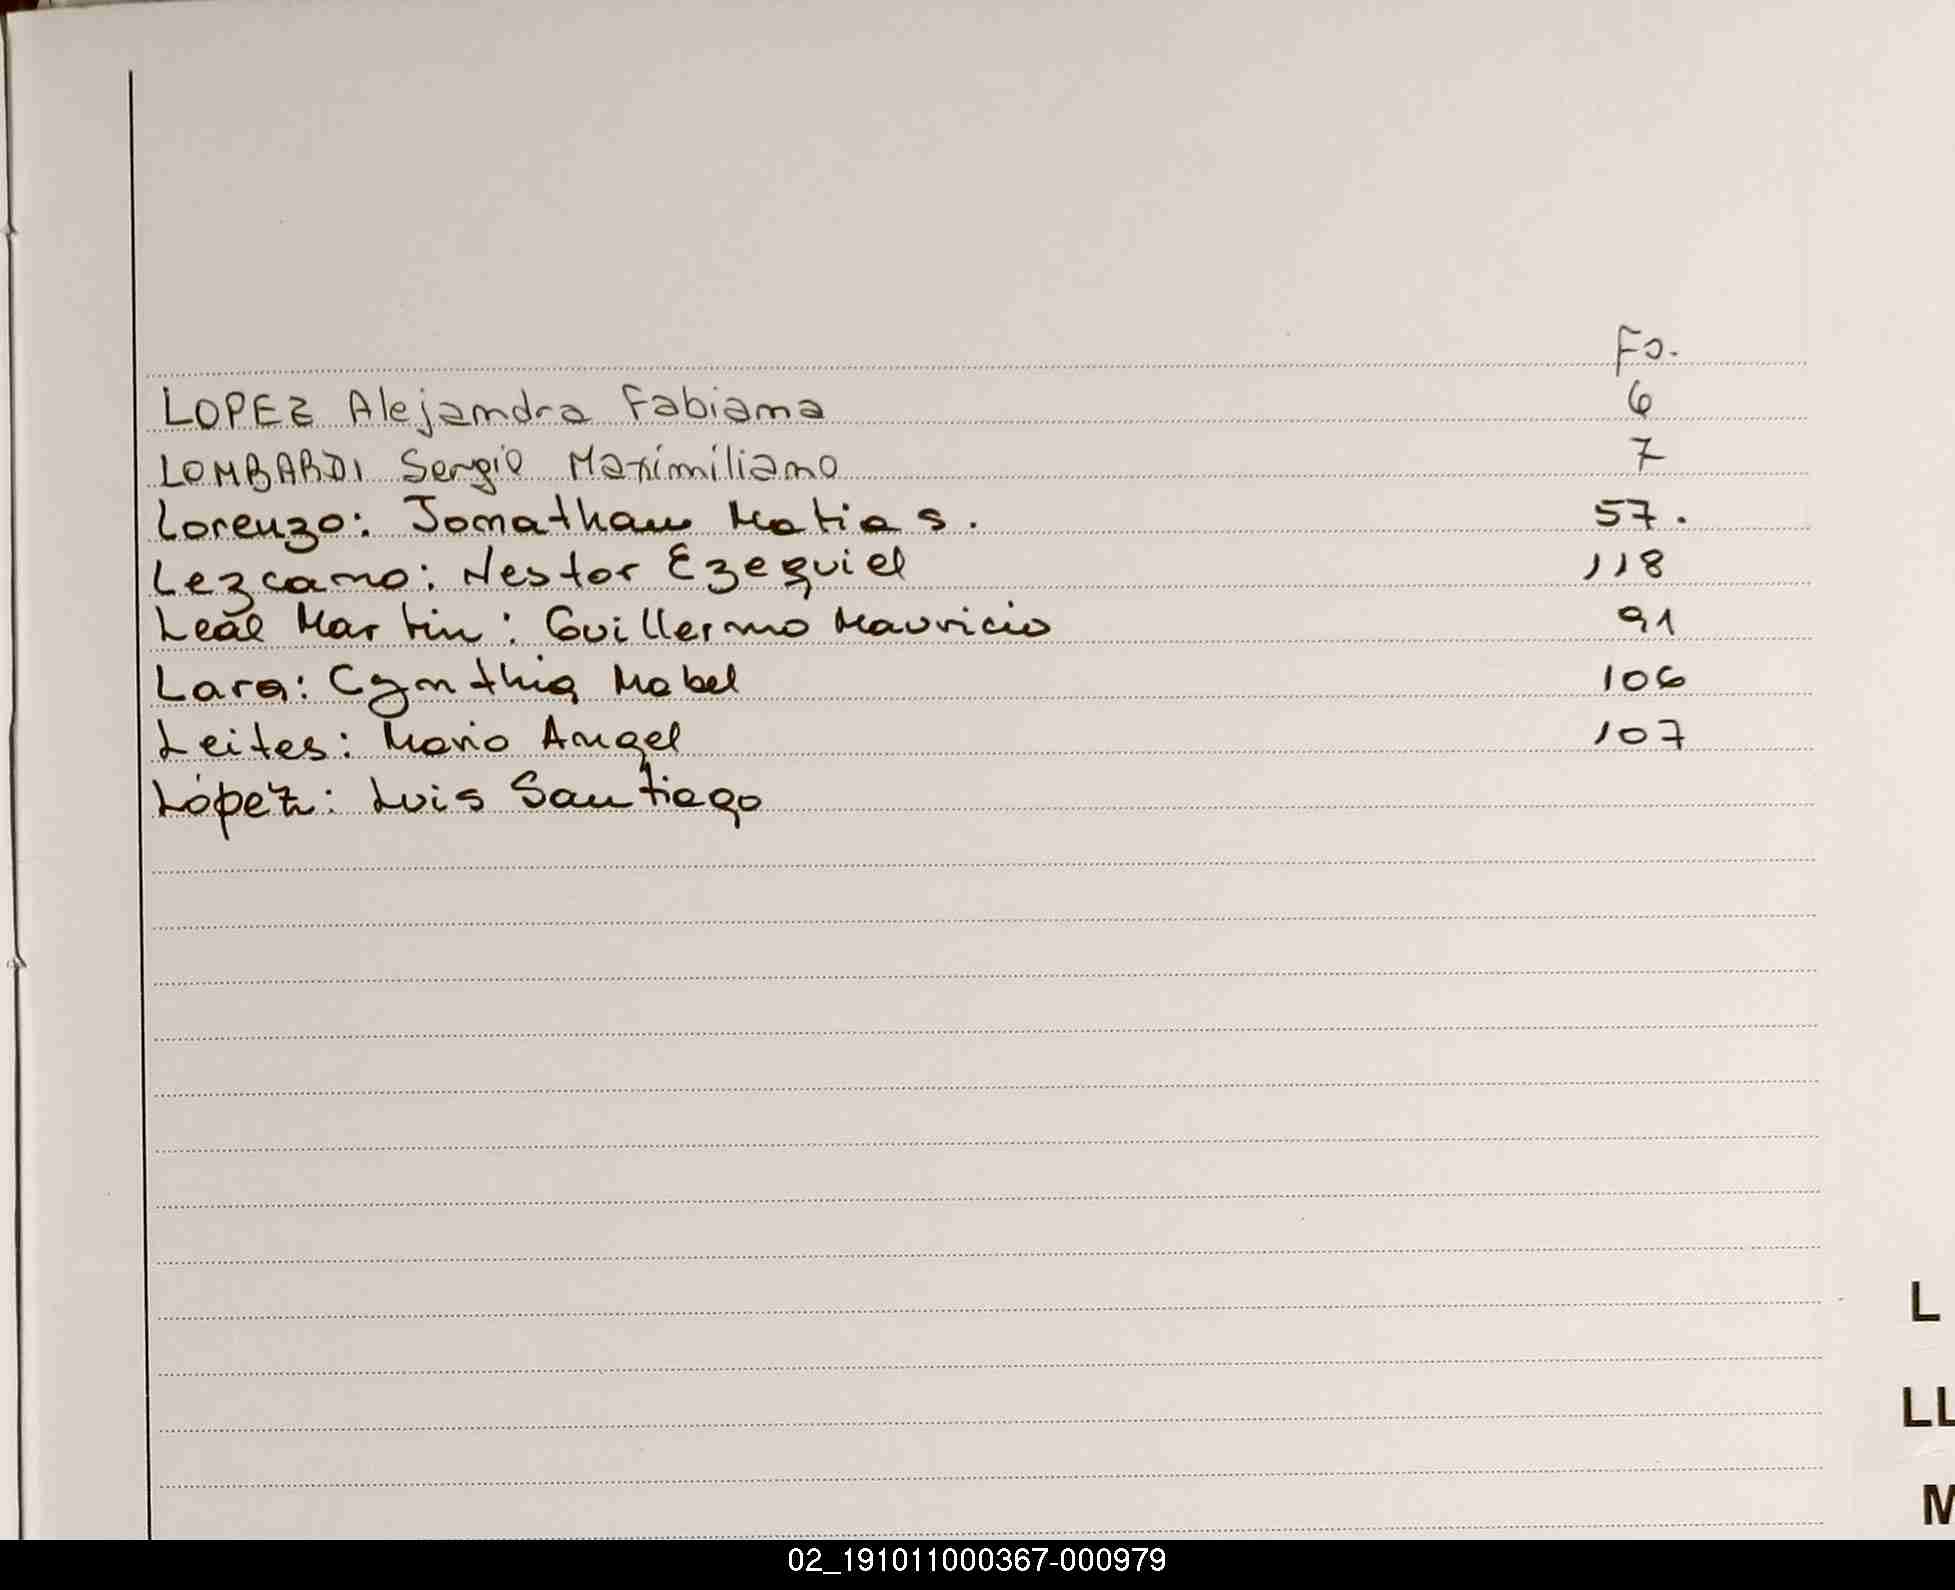 Fo.
LOPEZ Alejandra Fabiana 6
LOMBARDI Sergio Maximiliano 7
Lorenzo: Jonathan Matias. 57.
Lezcano: Nestor Ezequiel 118
Leal Martin: Guillermo Mauricio 91
Lara: Cynthia Mabel 106
Leites: Mario Angel 107
López: Luis Santiago
L
LL
M
02_191011000367-000979